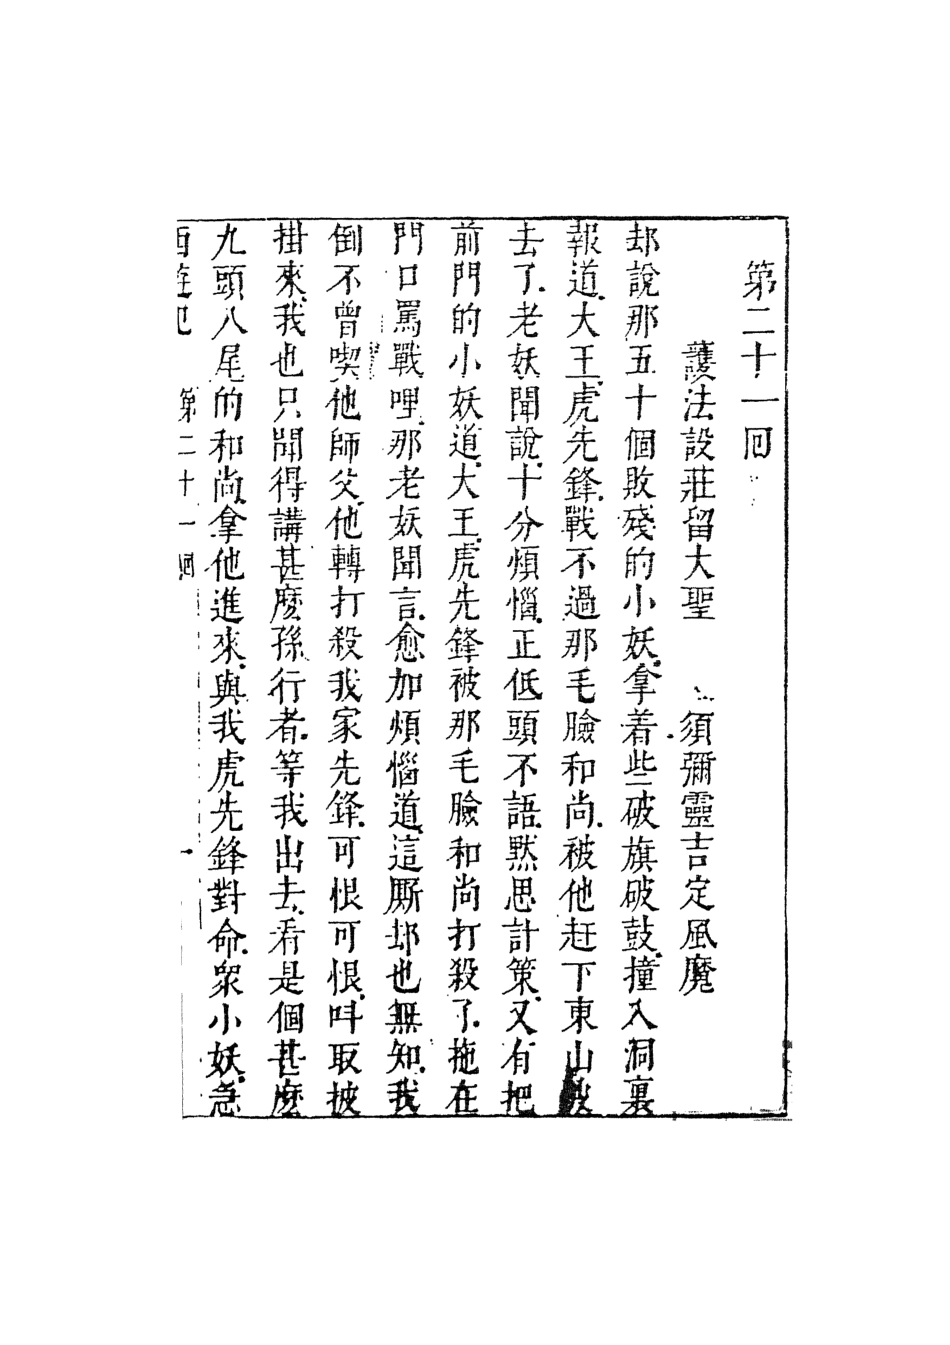 第二十一回
護法設莊留大聖　須彌靈吉定風魔
却說那五十個敗殘的小妖拿着些破旗破鼓撞入洞裏
報道大王虎先鋒戰不過那毛臉和尚被他赶下東山坡
去了老妖聞說十分煩惱正低頭不語默思計策又有把
前門的小妖道大王虎先鋒被那毛臉和尚打殺了拖在
門口罵戰哩那老妖聞言愈加煩惱道這厮却也無知我
倒不曾喫他師父他轉打殺我家先鋒可恨可恨呌取披
掛來我也只聞得講甚麽孫行者等我出去看是個甚麽
九頭八尾的和尚拿他進來與我虎先鋒對命衆小妖急
西遊記　第二十一迴